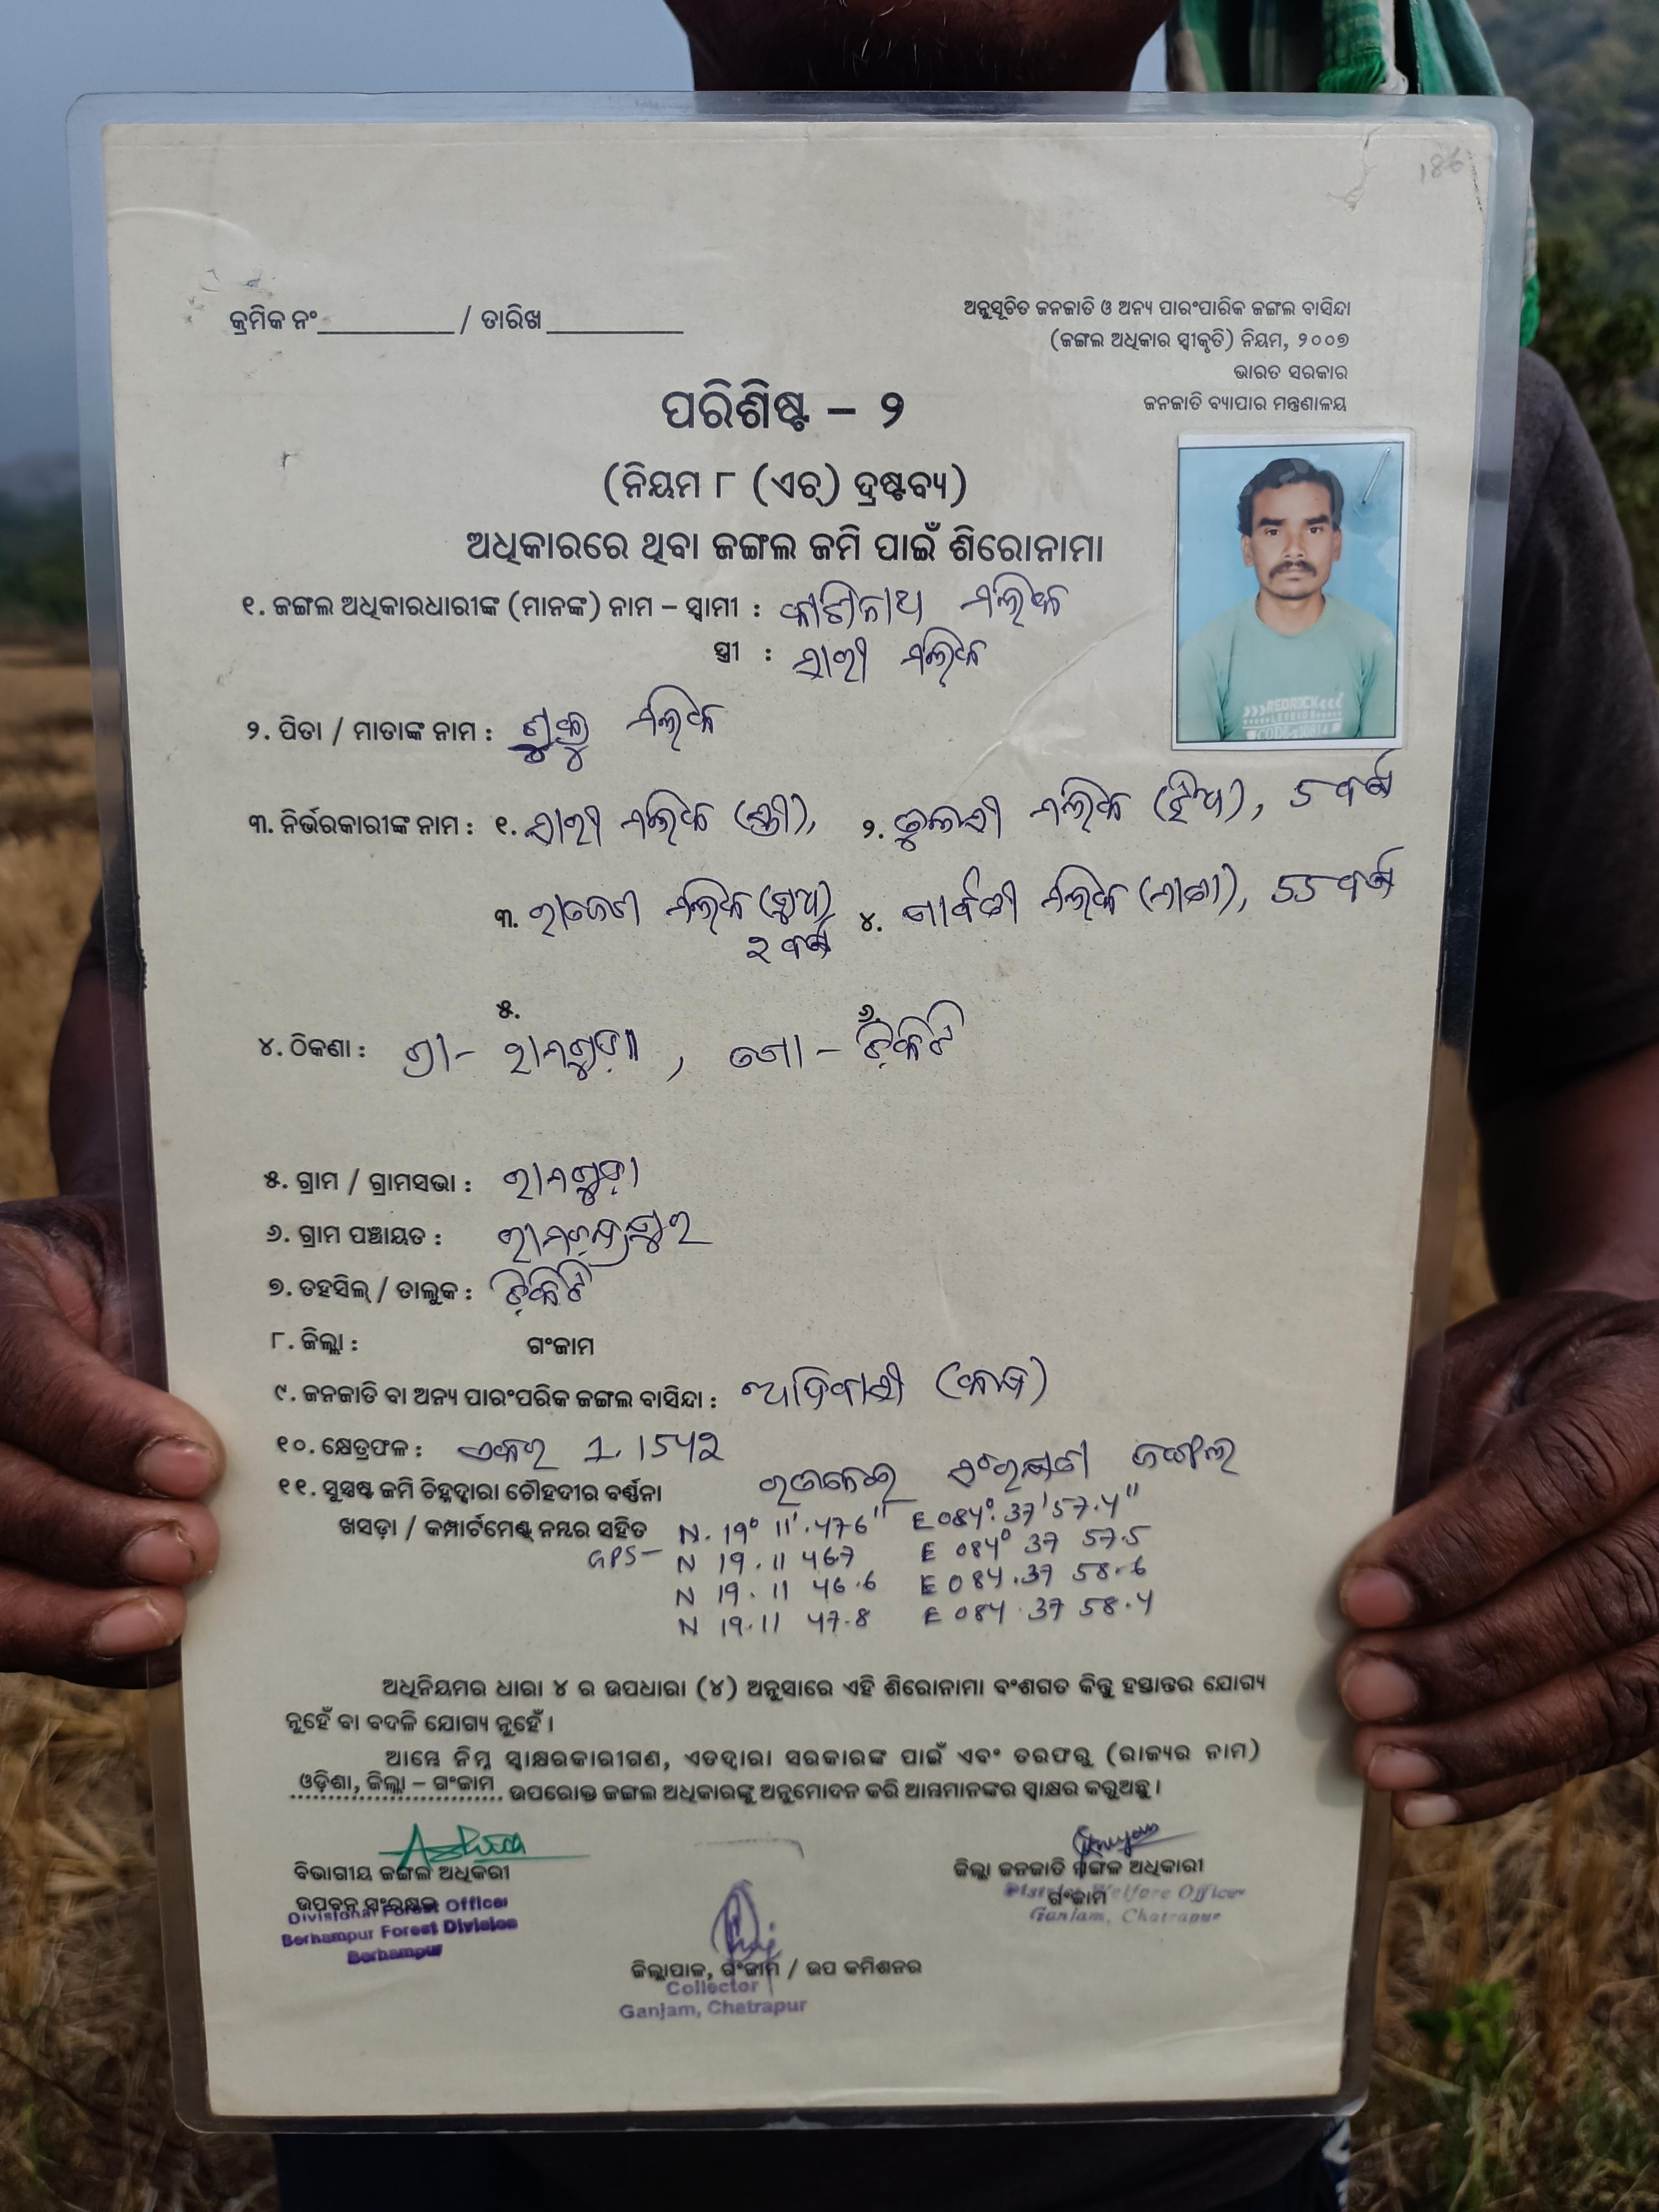 186
କ୍ରମିକ ନଂ__________ / ତାରିଖ__________
ଅନୁସୂଚିତ ଜନଜାତି ଓ ଅନ୍ୟ ପାରଂପାରିକ ଜଙ୍ଗଲ ବାସିନ୍ଦା
(ଜଙ୍ଗଲ ଅଧିକାର ସ୍ୱୀକୃତି) ନିୟମ, ୨୦୦୭
ଭାରତ ସରକାର
ଜନଜାତି ବ୍ୟାପାର ମନ୍ତ୍ରଣାଳୟ
ପରିଶିଷ୍ଟ – ୨
(ନିୟମ ୮ (ଏଚ୍) ଦ୍ରଷ୍ଟବ୍ୟ)
ଅଧିକାରରେ ଥିବା ଜଙ୍ଗଲ ଜମି ପାଇଁ ଶିରୋନାମା
୧. ଜଙ୍ଗଲ ଅଧିକାରଧାରୀଙ୍କ (ମାନଙ୍କ) ନାମ – ସ୍ୱାମୀ : କାଶିନାଥ ମଲିକ
ସ୍ତ୍ରୀ : ମଲିକ
୨. ପିତା / ମାତାଙ୍କ ନାମ : ମଲିକ
୩. ନିର୍ଭରକାରୀଙ୍କ ନାମ : ୧. ମଲିକ (ସ୍ତ୍ରୀ), ୨. ତୁଳସୀ ମଲିକ (ଝିଅ), 5 ବର୍ଷ
୩. ମଲିକ (ପୁଅ) ୪. ପାର୍ବତୀ ମଲିକ (ମାତା), 55 ବର୍ଷ
୨ ବର୍ଷ
୫. ୬.
୪. ଠିକଣା : ଗ୍ରା – ରାମଗୁଡ଼ା, ପୋ – ଚିକିଟି
୫. ଗ୍ରାମ / ଗ୍ରାମସଭା : ରାମଗୁଡ଼ା
୬. ଗ୍ରାମ ପଞ୍ଚାୟତ : ରାମଚନ୍ଦ୍ରପୁର
୭. ତହସିଲ୍ / ତାଲୁକ : ଚିକିଟି
୮. ଜିଲ୍ଲା : ଗଂଜାମ
୯. ଜନଜାତି ବା ଅନ୍ୟ ପାରଂପରିକ ଜଙ୍ଗଲ ବାସିନ୍ଦା : ଆଦିବାସୀ
୧୦. କ୍ଷେତ୍ରଫଳ : ଏକର 1.1542
୧୧. ସୁସ୍ପଷ୍ଟ ଜମି ଚିହ୍ନଦ୍ୱାରା ଚୌହଦୀର ବର୍ଣ୍ଣନା ସଂରକ୍ଷିତ ଜଙ୍ଗଲ
ଖସଡ଼ା / କମ୍ପାର୍ଟମେଣ୍ଟ୍ ନମ୍ବର ସହିତ N. 19° 11'.476" E 084°.37'57.4"
GPS – N 19.11 467 E 084° 37 57.5
N 19.11 46.6 E 084.37 58.6
N 19.11 47.8 E 084.37 58.4
ଅଧିନିୟମର ଧାରା ୪ ର ଉପଧାରା (୪) ଅନୁସାରେ ଏହି ଶିରୋନାମା ବଂଶଗତ କିନ୍ତୁ ହସ୍ତାନ୍ତର ଯୋଗ୍ୟ
ନୁହେଁ ବା ବଦଳି ଯୋଗ୍ୟ ନୁହେଁ ।
ଆମ୍ଭେ ନିମ୍ନ ସ୍ୱାକ୍ଷରକାରୀଗଣ, ଏତଦ୍ୱାରା ସରକାରଙ୍କ ପାଇଁ ଏବଂ ତରଫରୁ (ରାଜ୍ୟର ନାମ)
ଓଡ଼ିଶା, ଜିଲ୍ଲା – ଗଂଜାମ ଉପରୋକ୍ତ ଜଙ୍ଗଲ ଅଧିକାରଙ୍କୁ ଅନୁମୋଦନ କରି ଆମ୍ଭମାନଙ୍କର ସ୍ୱାକ୍ଷର କରୁଅଛୁ ।
ବିଭାଗୀୟ ଜଙ୍ଗଲ ଅଧିକରୀ
ଉପବନ ସଂରକ୍ଷକ
Divisional Forest Officer
Berhampur Forest Division
Berhampur
ଜିଲ୍ଲା ଜନଜାତି ମଙ୍ଗଳ ଅଧିକାରୀ
ଗଂଜାମ
District Welfare Officer
Ganjam, Chatrapur
ଜିଲ୍ଲାପାଳ, ଗଂଜାମ / ଉପ କମିଶନର
Collector
Ganjam, Chatrapur
REDROCK